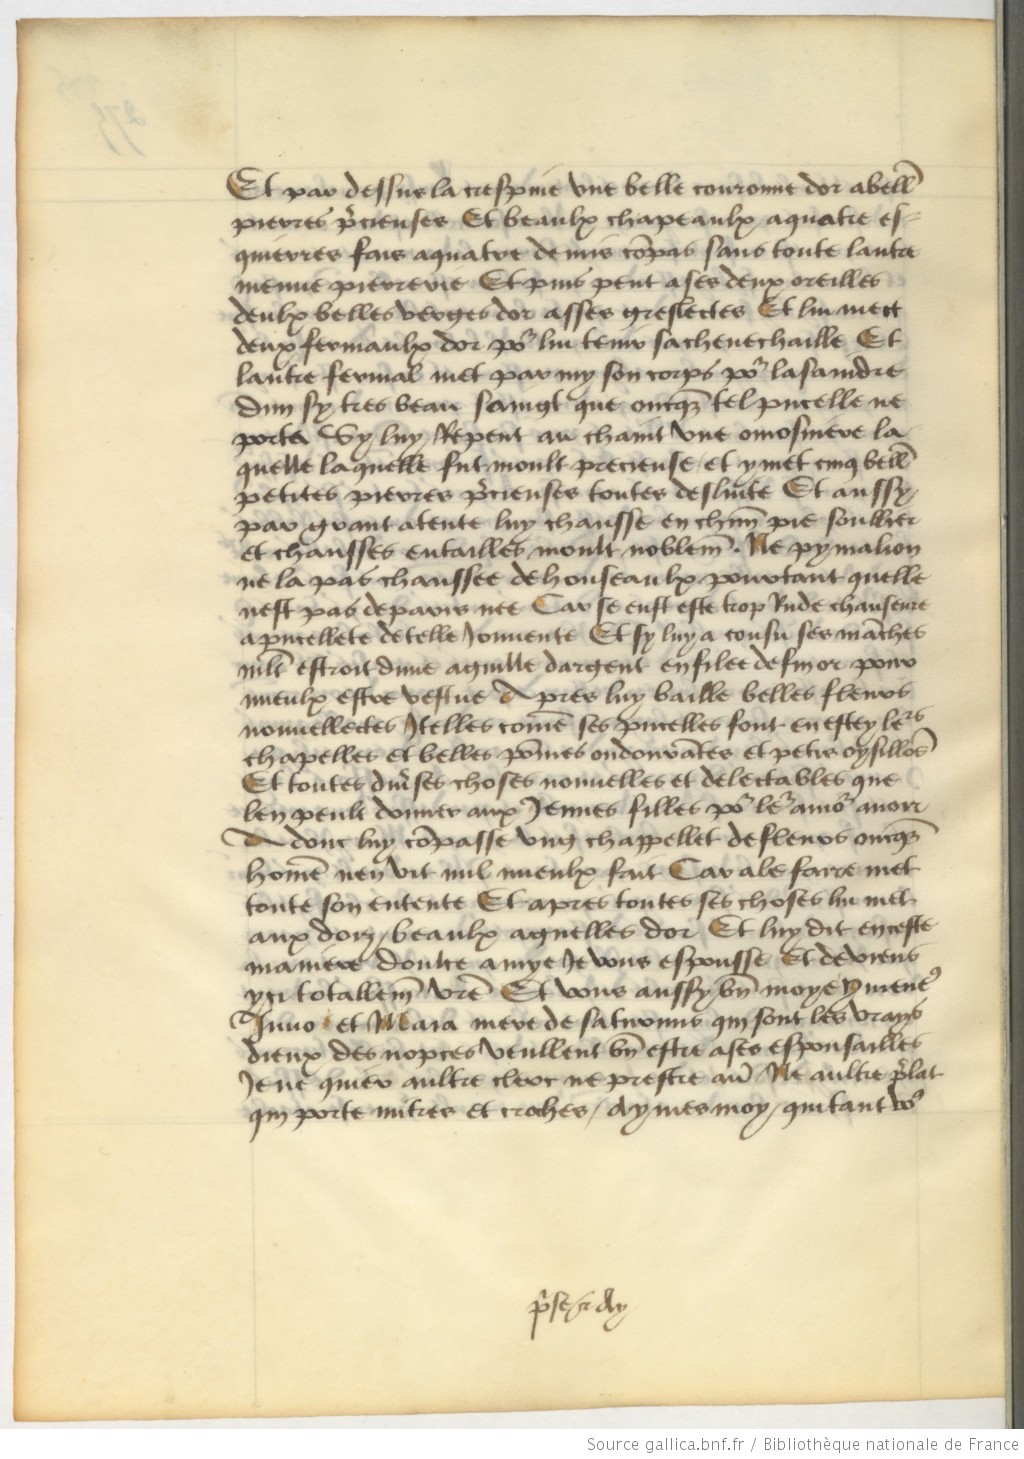 Et par dessus la crespine vne belle couronne dor a bell̄
pierres p̄cieuses Et beaulx chapeaulx a quatre es-
quierres fais a quatre demis cōpas sans toute lautre
menue pierrerie Et puis pent a ses deux oreilles
deulx belles verges dor asses greslectes Et lui mect
deux fermaulx dor po᷑ lui tenir sa cheuechaille Et
lautre fermal met par my son corps po᷑ la saindre
dun sy tres beau saingt que oncq̄ tel pucelle ne
porta Sy luy Repent au chaint vne omosniere la
quelle laquelle fut moult precieuse / et y met cinq bell̄
petites pierres p̄cieuses toutes deslinte Et aussy /
par grant atente luy chausse en chūn pie soullier
et chausses entailles moult noblem̄ . Ne pymalion
ne la pas chaussee de houseaulx pourtant quelle
nest pas de paris nee Car se eust este trop Rude chauseure
a pucellete de telle Jouuente Et sy luy a cousu ses māches
mlt̄ estroit dune aguille dargent enfilee de fin or pour
mieulx estre vestue Apres luy baille belles fleurs
nouuellectes Jtelles com̄e ses pucelles font en estey le᷑s
chapelles et belles pōmes ondourātes et petis oysillōs
Et toutes diu᷑ses choses nouuelles et delectables que
len peult donner aux Jeunes filles po᷑ le᷑ amo᷑ auoir
Adonc luy cōpasse vng chappellet de fleurs oncq̄
hom̄e nen vit nul mieulx fait Car a le farre met
toute son entente Et apres toutes ses choses lui met
aux doiz / beaulx aguelles dor Et luy dit en ceste
maniere doulce amye Je vous espousse Et deuiens
ycy totallem̄ vr̄e Et vous aussy bn̄ moye ymene᷒
Juno et Maia mere de saturnus qui sont les vrays
dieux des nopces veullent bn̄ estre a ses espousailles
Je ne quier aultre clerc ne prestre au᷑ Ne aultre p̄lat
qui porte mitres et croches / Aymes moy / quitant vo᷒
p̄se / et Ay